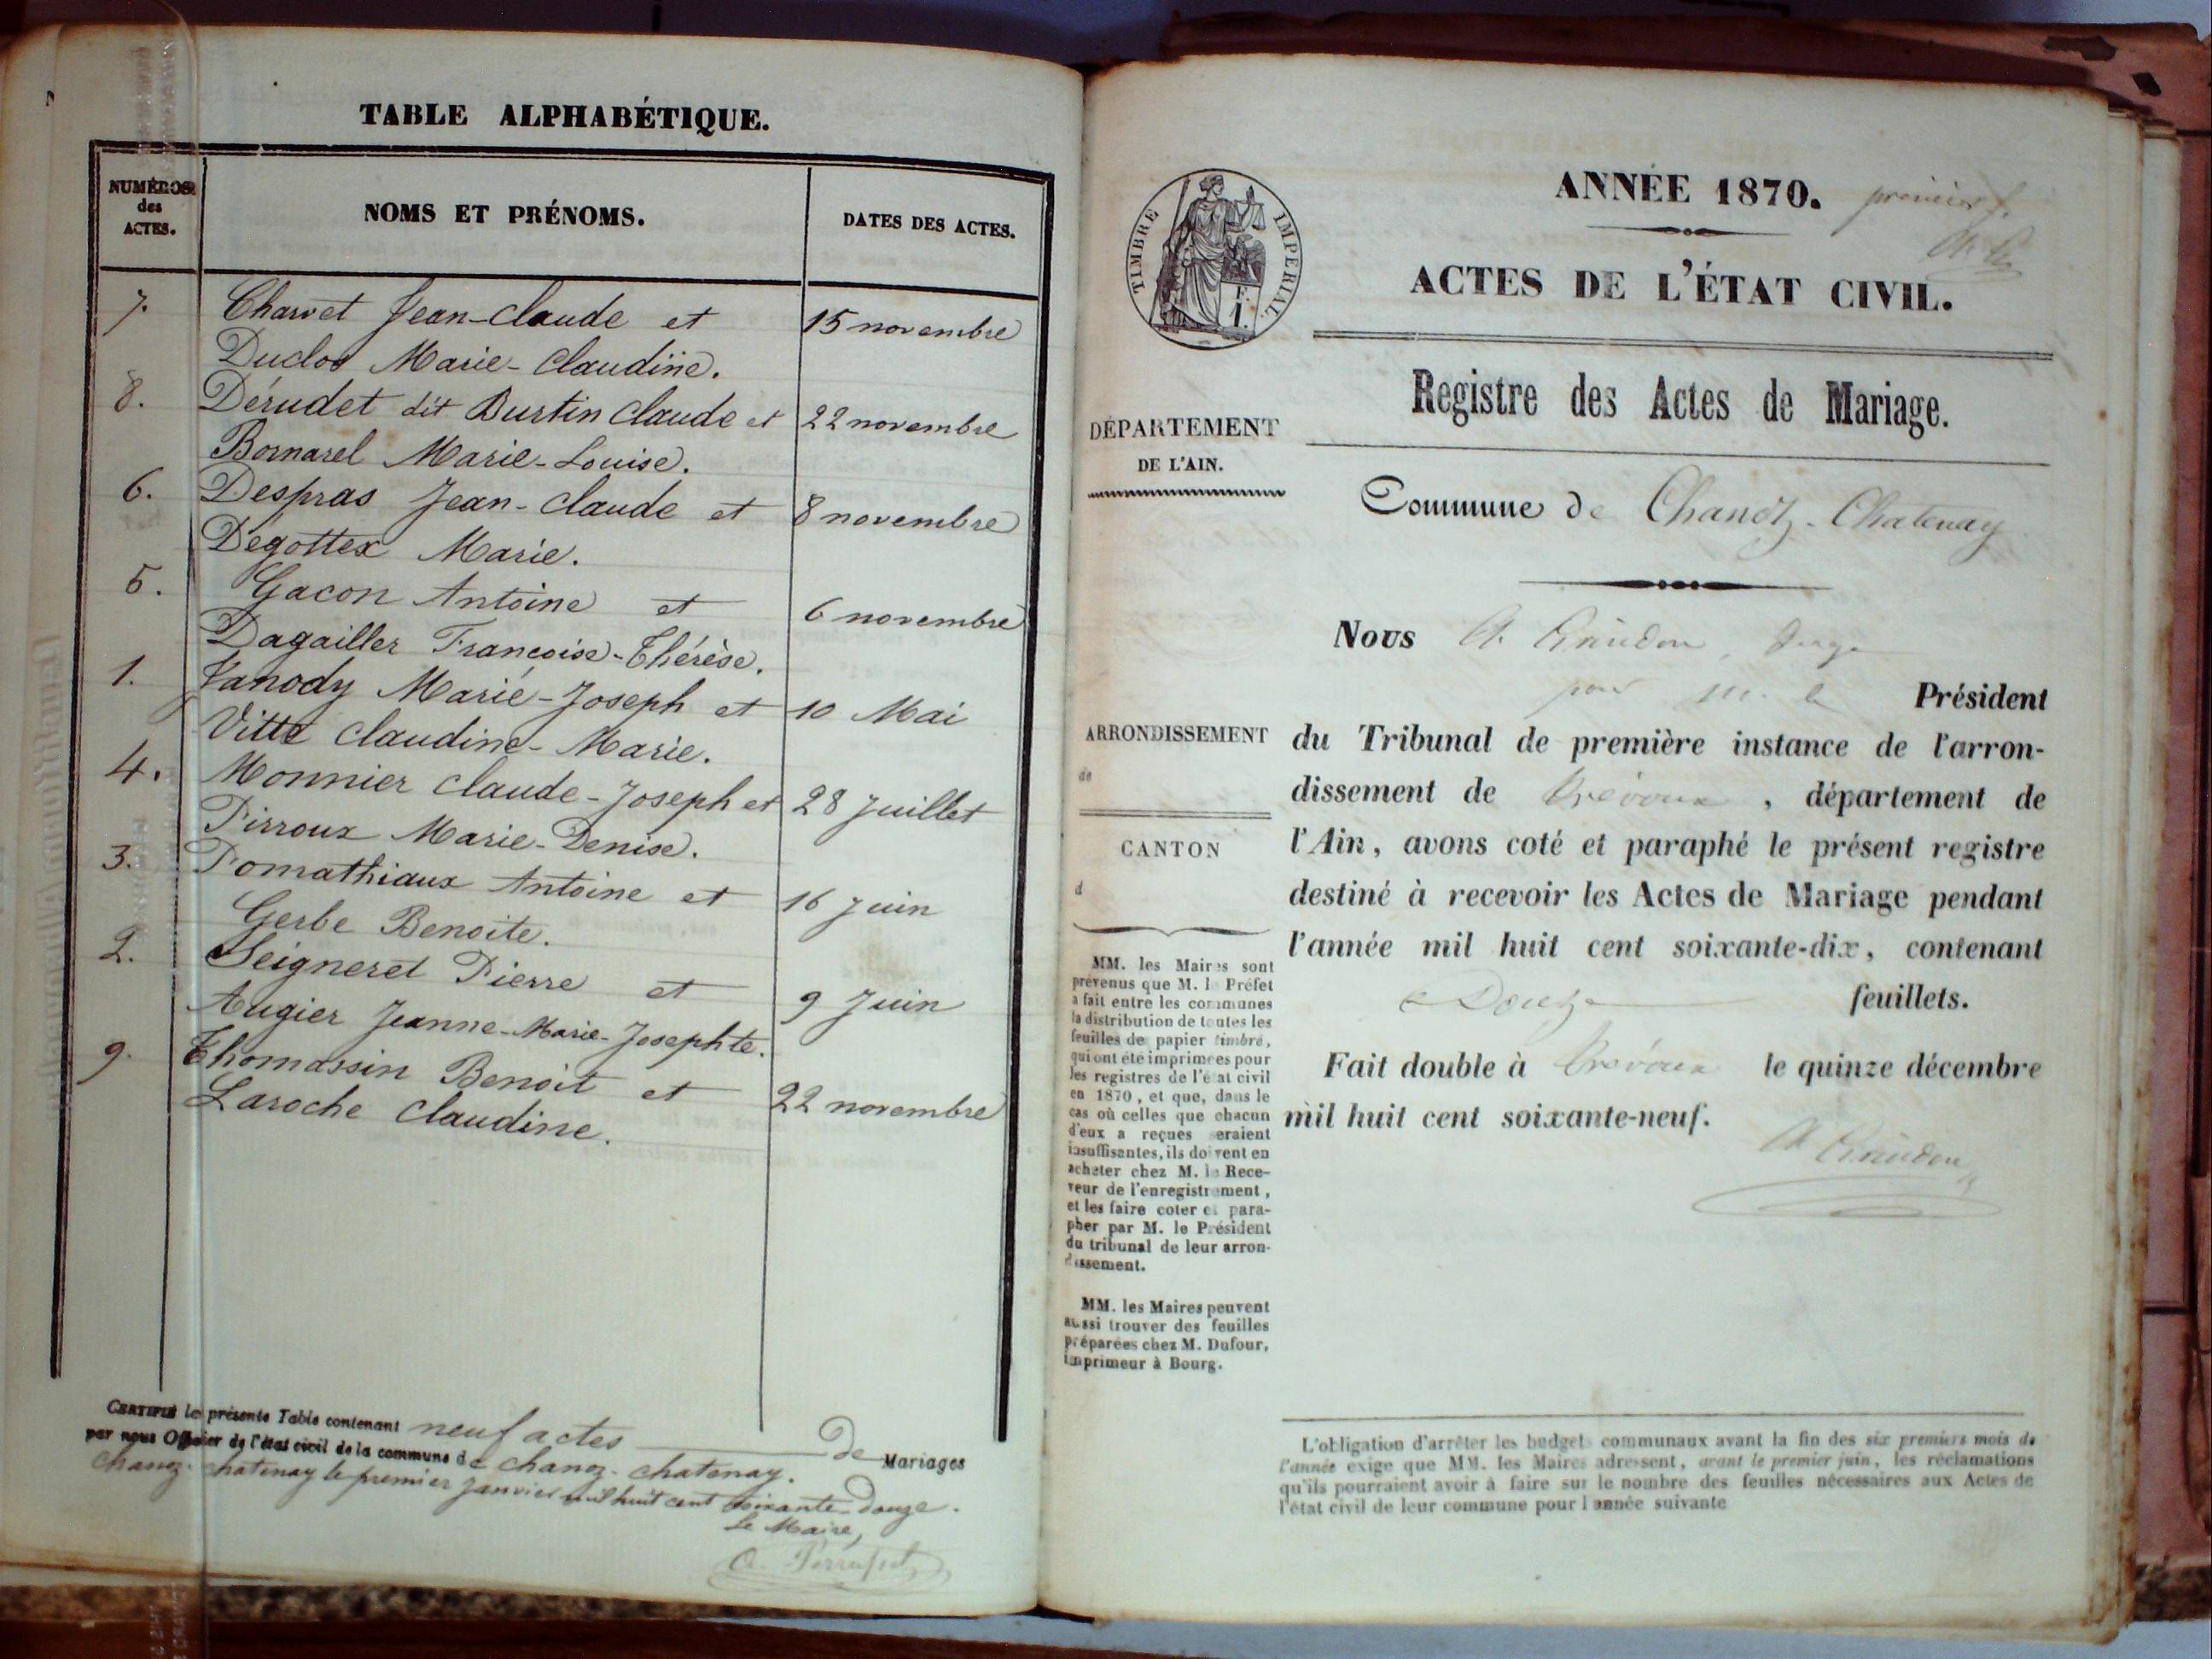 TABLE ALPHABÉTIQUE.
NUMÉROS des ACTES.
NOMS ET PRÉNOMS.
DATES DES ACTES.
7. Charvet Jean-Claude et 15 novembre
Duclos Marie-Claudine.
8. Dérudet dit Burtin Claude et 22 novembre
Bornarel Marie-Louise.
6. Despras Jean-Claude et 8 novembre
Dégottex Marie.
5. Gacon Antoine et 6 novembre
Dagailler Françoise-Thérèse.
1. Janody Marie-Joseph et 10 Mai
Vitte Claudine-Marie.
4. Monnier Claude-Joseph et 28 Juillet
Pirroux Marie-Denise.
3. Pomathiaux Antoine et 16 Juin
Gerbe Benoite.
2. Seigneret Pierre et 9 Juin
Augier Jeanne-Marie-Josephte.
9. Thomassin Benoit et 22 novembre
Laroche Claudine.
CERTIFIÉ la présente Table contenant neuf actes de Mariages
par nous Officier de l'état civil de la commune de Chanoz-Chatenay.
Chanoz-Chatenay le premier Janvier mil huit cent soixante-douze.
Le Maire,
ANNÉE 1870. premier f.
TIMBRE IMPÉRIAL
F.
1.
ACTES DE L'ÉTAT CIVIL.
Registre des Actes de Mariage.
DÉPARTEMENT
DE L'AIN.
Commune de Chanoz-Chatenay
ARRONDISSEMENT
de
CANTON
d
MM. les Maires sont
prévenus que M. le Préfet
a fait entre les communes
la distribution de toutes les
feuilles de papier timbré,
qui ont été imprimées pour
les registres de l'état civil
en 1870, et que, dans le
cas où celles que chacun
d'eux a reçues seraient
insuffisantes, ils doivent en
acheter chez M. le Rece-
veur de l'enregistrement,
et les faire coter et para-
pher par M. le Président
du tribunal de leur arron-
dissement.
MM. les Maires peuvent
aussi trouver des feuilles
préparées chez M. Dufour,
imprimeur à Bourg.
Nous A. Juge
pour M. le Président
du Tribunal de première instance de l'arron-
dissement de Trévoux, département de
l'Ain, avons coté et paraphé le présent registre
destiné à recevoir les Actes de Mariage pendant
l'année mil huit cent soixante-dix, contenant
Douze feuillets.
Fait double à Trévoux le quinze décembre
mil huit cent soixante-neuf.
L'obligation d'arrêter les budgets communaux avant la fin des six premiers mois de
l'année exige que MM. les Maires adressent, avant le premier juin, les réclamations
qu'ils pourraient avoir à faire sur le nombre des feuilles nécessaires aux Actes de
l'état civil de leur commune pour l'année suivante